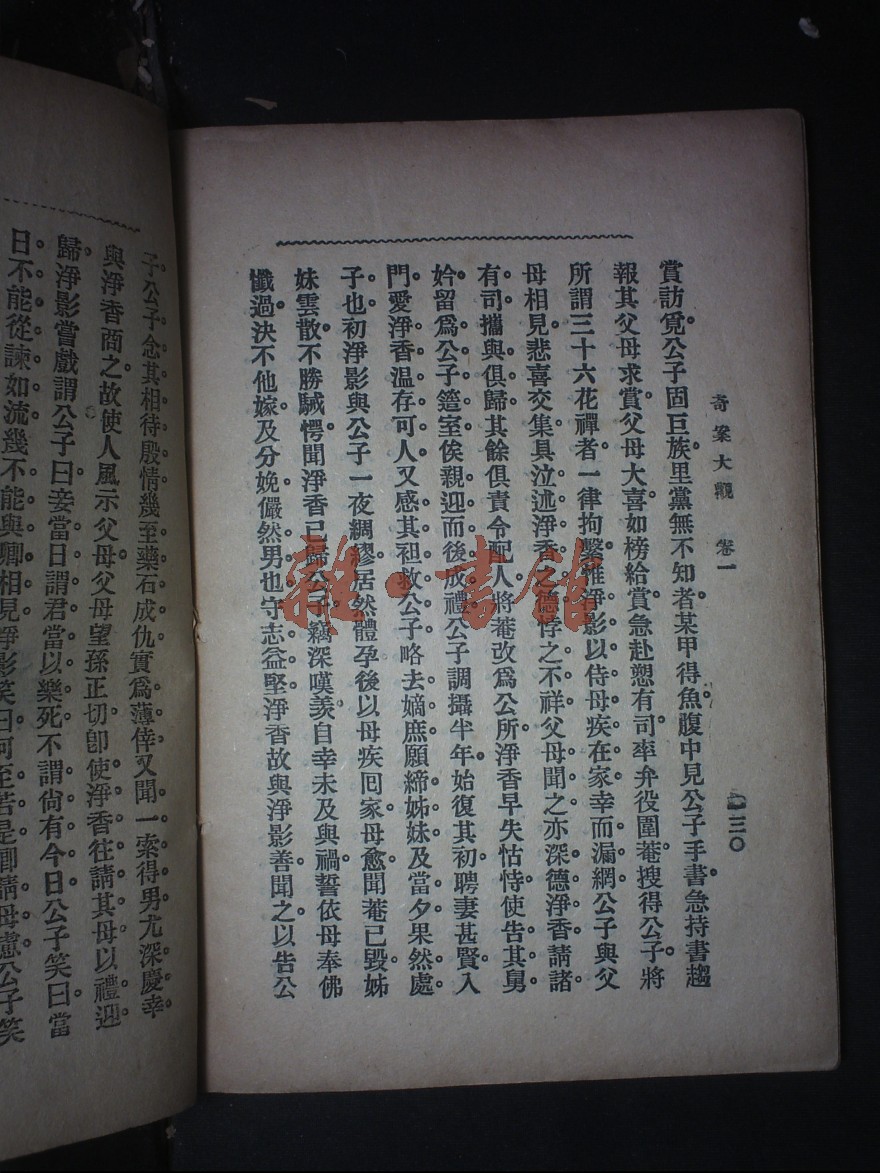 奇案大觀 卷一
三〇
賞訪覓公子固巨族里黨無不知者某甲得魚腹中見公子手書急持書趨
報其父母求賞父母大喜如榜給賞急赴愬有司率弁役圍菴搜得公子將
所謂三十六花禪者一律拘繫惟淨影以侍母疾在家幸而漏網公子與父
母相見悲喜交集具泣述淨香之德悖之不祥父母聞之亦深德淨香請諸
有司攜與俱歸其餘俱責令配人將菴改爲公所淨香早失怙恃使告其舅
妗留爲公子簉室俟親迎而後成禮公子調攝半年始復其初聘妻甚賢入
門愛淨香溫存可人又感其袒救公子略去嫡庶願締姊妹及當夕果然處
子也初淨影與公子一夜綢繆居然體孕後以母疾回家母愈聞菴已毀姊
妹雲散不勝駴愕聞淨香已歸公子竊深嘆羨自幸未及與禍誓依母奉佛
懺過決不他嫁及分娩儼然男也守志益堅淨香故與淨影善聞之以告公
子公子念其相待殷情幾至藥石成仇實爲薄倖又聞一索得男尤深慶幸
與淨香商之故使人風示父母父母望孫正切卽使淨香往請其母以禮迎
歸淨影嘗戲謂公子曰妾當日謂君當以樂死不謂尙有今日公子笑曰當
日不能從諫如流幾不能與卿相見淨影笑曰何至若是卿請母慮公子笑
雜·書館